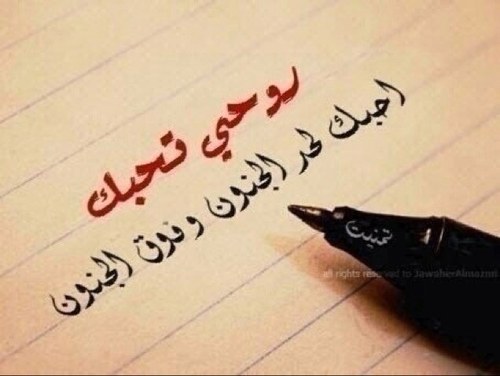 روحي تحبك
احبك لحد الجنون وفوق الجنون
تمنيت
all rights reserved to JawaherAlmazroi